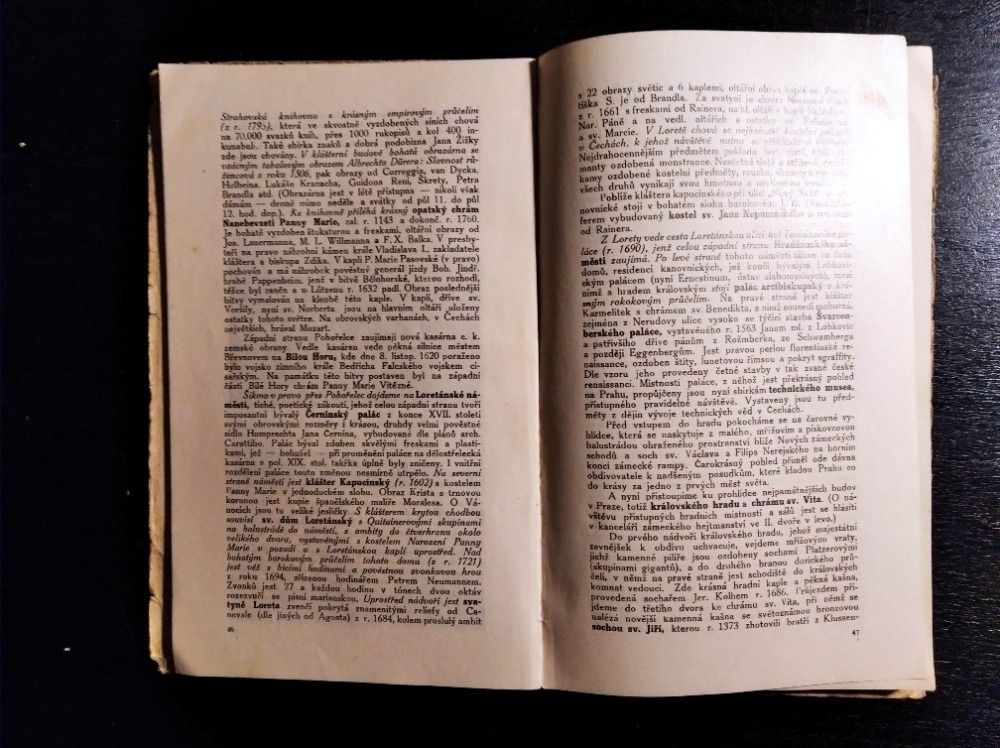 Strahovská knihovna s krásným empirovým průčelím
(z r. 1795), která ve skvostně vyzdobených síních chová
na 70.000 svazků knih, přes 1000 rukopisů a kol 400 in-
kunabulí. Také sbírka znaků a dobrá podobizna Jana Žižky
zde jsou chovány. V klášterní budově bohatá obrazárna se
vzácným tabulovým obrazem Albrechta Dürera: Slavnost rů-
žencová z roku 1506, pak obrazy od Correggia, van Dycka,
Holbeina, Lukáše Kranacha, Guidona Reni, Škréty, Petra
Brandla atd. (Obrazárna jest v létě přístupna — nikoli však
dámám — denně mimo neděle a svátky od půl 11. do půl
12. hod. dop.). Ke knihovně přiléhá krásný opatský chrám
Nanebevzetí Panny Marie, zal. r. 1143 a dokonč. r. 1760.
Je bohatě vyzdoben štukaturou a freskami, oltářní obrazy od
Jos. Lauermanna, M. L. Willmanna a F. X. Balka. V presby-
teři na pravo náhrobní kámen krále Vladislava I., zakladatele
kláštera a biskupa Zdíka. V kapli P. Marie Pasovské (v pravo)
pochován a má náhrobek pověstný generál jízdy Boh. Jindř.
hrabě Pappenheim, jenž v bitvě Bělohorské, kterou rozhodl,
těžce byl raněn a u Lützenu r. 1632 padl. Obraz poslednější
bitvy vymalován na klenbě této kaple. V kapli, dříve sv.
Voršily, nyní sv. Norberta jsou na hlavním oltáři uloženy
ostatky tohoto světce. Na obrovských varhanách, v Čechách
největších, hrával Mozart.
Západní stranu Pohořelce zaujímají nová kasárna c. k.
zemské obrany. Vedle kasáren vede pěkná silnice městem
Břevnovem na Bílou Horu, kde dne 8. listop. 1620 poraženo
bylo vojsko zimního krále Bedřicha Falckého vojskem cí-
sařským. Na památku této bitvy postaven byl na západní
části Bílé Hory chrám Panny Marie Vítězné.
Šikmo v pravo přes Pohořelec dojdeme na Loretánské ná-
městí, tiché, poetický zákoutí, jehož celou západní stranu tvoří
imposantní bývalý Černínský palác z konce XVII. století
svými obrovskými rozměry i krásou, druhdy velmi pověstné
sídlo Humprechta Jana Černína, vybudované dle plánů arch.
Carattiho. Palác býval zdoben skvělými freskami a plasti-
kami, jež — bohužel — při proměnění paláce na dělostřelecká
kasárna v pol. XIX. stol. takřka úplně byly zničeny. I vnitřní
rozdělení paláce touto změnou nesmírně utrpělo. Na severní
straně náměstí jest klášter Kapucínský (r. 1602) s kostelem
Panny Marie v jednoduchém slohu. Obraz Krista s trnovou
korunou jest kopie španělského malíře Moralesa. O Vá-
nocích jsou tu veliké jesličky. S klášterem krytou chodbou
souvisí sv. dům Loretánský s Quitainerovými skupinami
na balustrádě do náměstí, s ambity do čtverhranu okolo
velikého dvora, vystavěnými s kostelem Narození Panny
Marie v pozadí a s Loretánskou kaplí uprostřed. Nad
bohatým barokovým průčelím tohoto domu (z r. 1721)
jest věž s bicími hodinami a pověstnou zvonkovou hrou
z roku 1694, zřízenou hodinářem Petrem Neumannem.
Zvonků jest 27 a každou hodinu v tónech dvou oktáv
rozezvučí se písní marianskou. Uprostřed nádvoří jest sva-
tyně Loreta zevně pokrytá znamenitými reliefy od Ca-
nevale (dle jiných od Agosta) z r. 1684, kolem proslulý ambit
46
s 22 obrazy světic a 6 kaplemi, oltářní obraz kaple sv. Fran-
tiška S. je od Brandla. Za svatyní je chrám Narození
z r. 1661 s freskami od Rainera, na hl. oltáři
Nar. Páně a na vedl. oltářích s ostatky sv.
a sv. Marcie. V Loretě chová se nejbohatší
v Čechách, k jehož návštěvě nutno se přihlásiti
Nejdrahocennějším předmětem pokladu jest
manty ozdobená monstrance. Nesčetné zlaté a stříbrné
kamy ozdobené kostelní předměty, roucha,
všech druhů vynikají svou hmotnou a uměleckou
Poblíže kláštera kapucínského při ulici
novnické stojí v bohatém slohu barokovém J.
ferem vybudovaný kostel sv. Jana Nepomuckého
od Rainera.
Z Lorety vede cesta Loretánskou ulicí
láce (r. 1690), jenž celou západní stranu Hradčanského ná-
městí zaujímá. Po levé straně tohoto náměstí táhne se řada
domů, residencí kanovnických, jež končí bývalým Lobkovi-
ckým palácem (nyní Ernestinum, ústav slabomyslných), mezi
nímž a hradem královským stojí palác arcibiskupský s krá-
sným rokokovým průčelím. Na pravé straně jest klášter
Karmelitek s chrámem sv. Benedikta, s nímž sousedí mohutná,
zejména z Nerudovy ulice vysoko se týčící stavba Švarcen-
berského paláce, vystavěného r. 1563 Janem ml. z Lobkovic
a patřivšího dříve pánům z Rožmberka, ze Schwamberga
a později Eggenbergům. Jest pravou perlou florentinské re-
naissance, ozdoben štíty, lunetovou římsou a pokryt sgraffity.
Dle vzoru jeho provedeny četné stavby v tak zvané české
renaissanci. Místnosti paláce, z něhož jest překrásný pohled
na Prahu, propůjčeny jsou nyní sbírkám technického musea,
přístupného pravidelné návštěvě. Vystaveny jsou tu před-
měty z dějin vývoje technických věd v Čechách.
Před vstupem do hradu pokocháme se na čarovné vy-
hlídce, která se naskytuje z malého, mřížovím a pískovcovou
balustrádou ohraženého prostranství blíže Nových zámeckých
schodů a soch sv. Václava a Filipa Nerejského na horním
konci zámecké rampy. Čarokrásný pohled přiměl ode dávna
obdivovatele k nadšeným posudkům, které kladou Prahu co
do krásy za jedno z prvých měst světa.
A nyní přistoupíme ku prohlídce nejpamátnějších budov
v Praze, totiž královského hradu a chrámu sv. Víta. (O ná-
vštěvu přístupných hradních místností a sálů jest se hlásiti
v kanceláři zámeckého hejtmanství ve II. dvoře v levo.)
Do prvého nádvoří královského hradu, jehož majestátní
zevnějšek k obdivu uchvacuje, vejdeme mřížovými vraty,
jichž kamenné pilíře jsou ozdobeny sochami Platzerovými
(skupinami gigantů), a do druhého branou dorického prů-
čelí, v němž na pravé straně jest schodiště do královských
komnat vedoucí. Zde krásná hradní kaple a pěkná kašna,
provedená sochařem Jer. Kolhem r. 1686. Průjezdem při-
jdeme do třetího dvora ke chrámu sv. Víta, při němž se
nalézá novější kamenná kašna se světoznámou bronzovou
sochou sv. Jiří, kterou r. 1373 zhotovili bratří z Klussen-
47